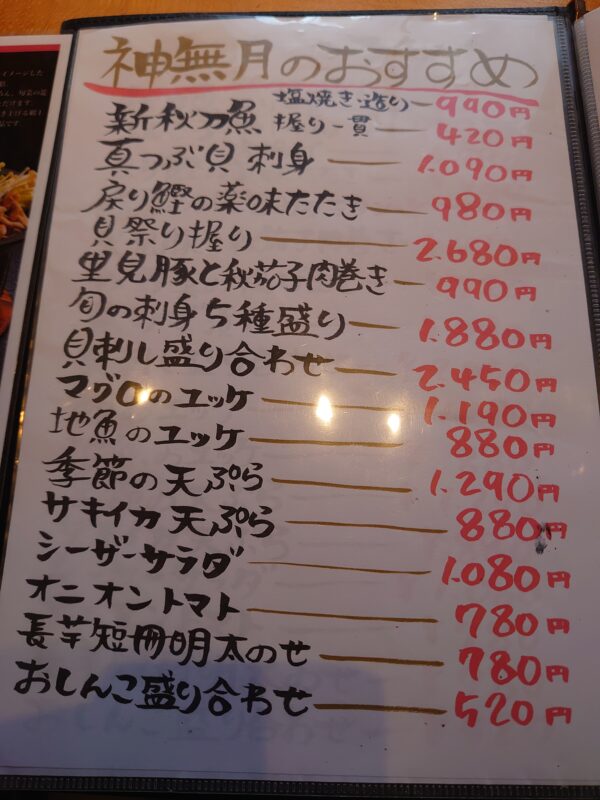 神無月のおすすめ
新秋刀魚 塩焼き・造り 990円
握り一貫 420円
真つぶ貝 刺身 1.090円
戻り鰹の薬味たたき 980円
貝祭り握り 2.680円
里見豚と秋茄子肉巻き 990円
旬の刺身5種盛り 1.880円
貝刺し盛り合わせ 2.450円
マグロのユッケ 1.190円
地魚のユッケ 880円
季節の天ぷら 1.290円
サキイカ天ぷら 880円
シーザーサラダ 1.080円
オニオントマト 780円
長芋短冊明太のせ 780円
おしんこ盛り合わせ 520円